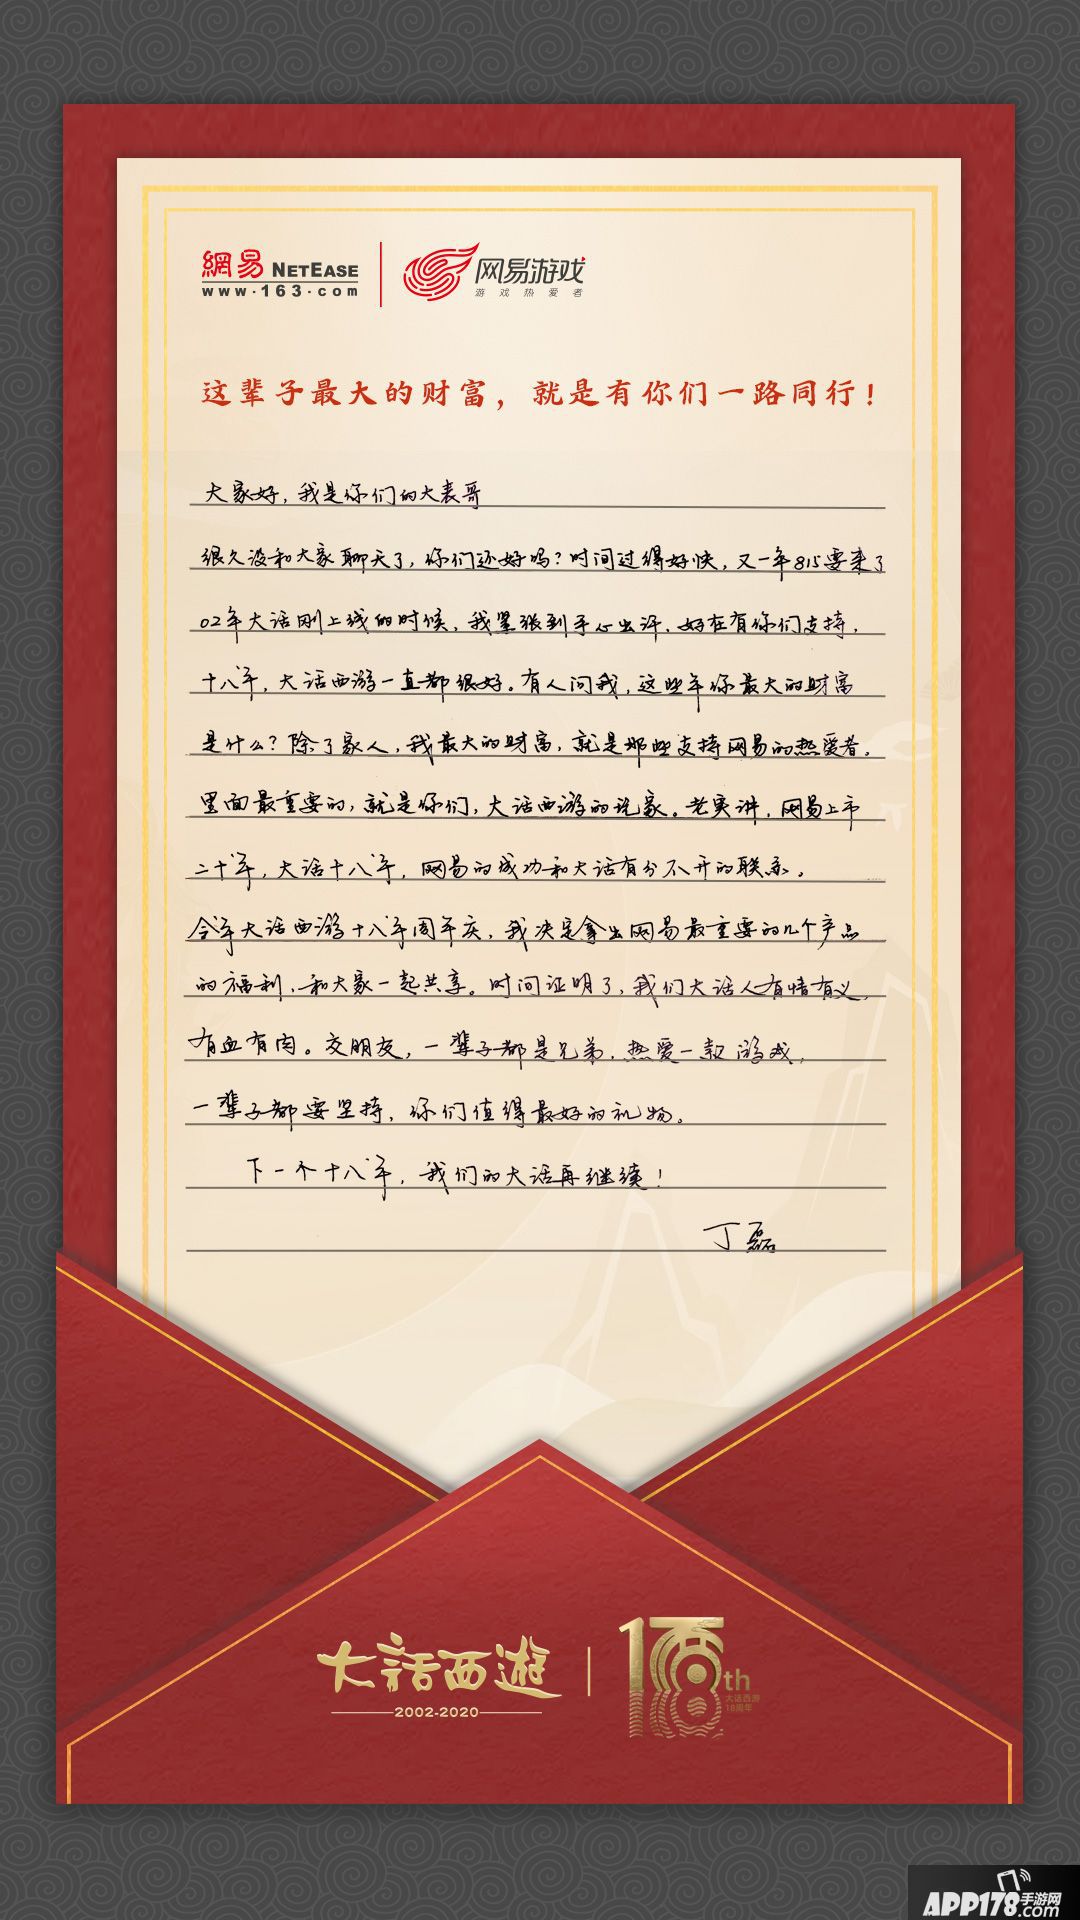 網易 NETEASE
www.163.com
网易游戏
游戏热爱者
这辈子最大的财富，就是有你们一路同行！
大家好，我是你们的大表哥
很久没和大家聊天了，你们还好吗？时间过得好快，又一年815要来了
02年大话刚上线的时候，我紧张到手心出汗，好在有你们支持，
十八年，大话西游一直都很好。有人问我，这些年你最大的财富
是什么？除了家人，我最大的财富，就是那些支持网易的热爱者。
里面最重要的，就是你们，大话西游的玩家。老实讲，网易上市
二十年，大话十八年，网易的成功和大话有分不开的联系。
今年大话西游十八年周年庆，我决定拿出网易最重要的几个产品
的福利，和大家一起共享。时间证明了，我们大话人有情有义，
有血有肉。交朋友，一辈子都是兄弟，热爱一款游戏，
一辈子都要坚持，你们值得最好的礼物。
下一个十八年，我们的大话再继续！
丁磊
大话西遊
2002-2020
18th
大话西游
18周年
APP178手游网
.com